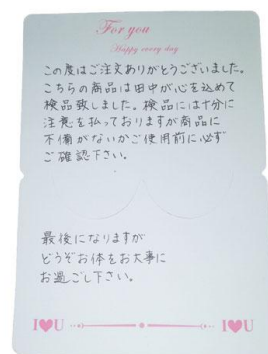 For you
Happy every day
この度はご注文ありがとうございました。
こちらの商品は田中が心を込めて
検品致しました。検品には十分に
注意を払っておりますが商品に
不備がないかご使用前に必ず
ご確認下さい。
最後になりますが
どうぞお体をお大事に
お過ごし下さい。
I♥U I♥U